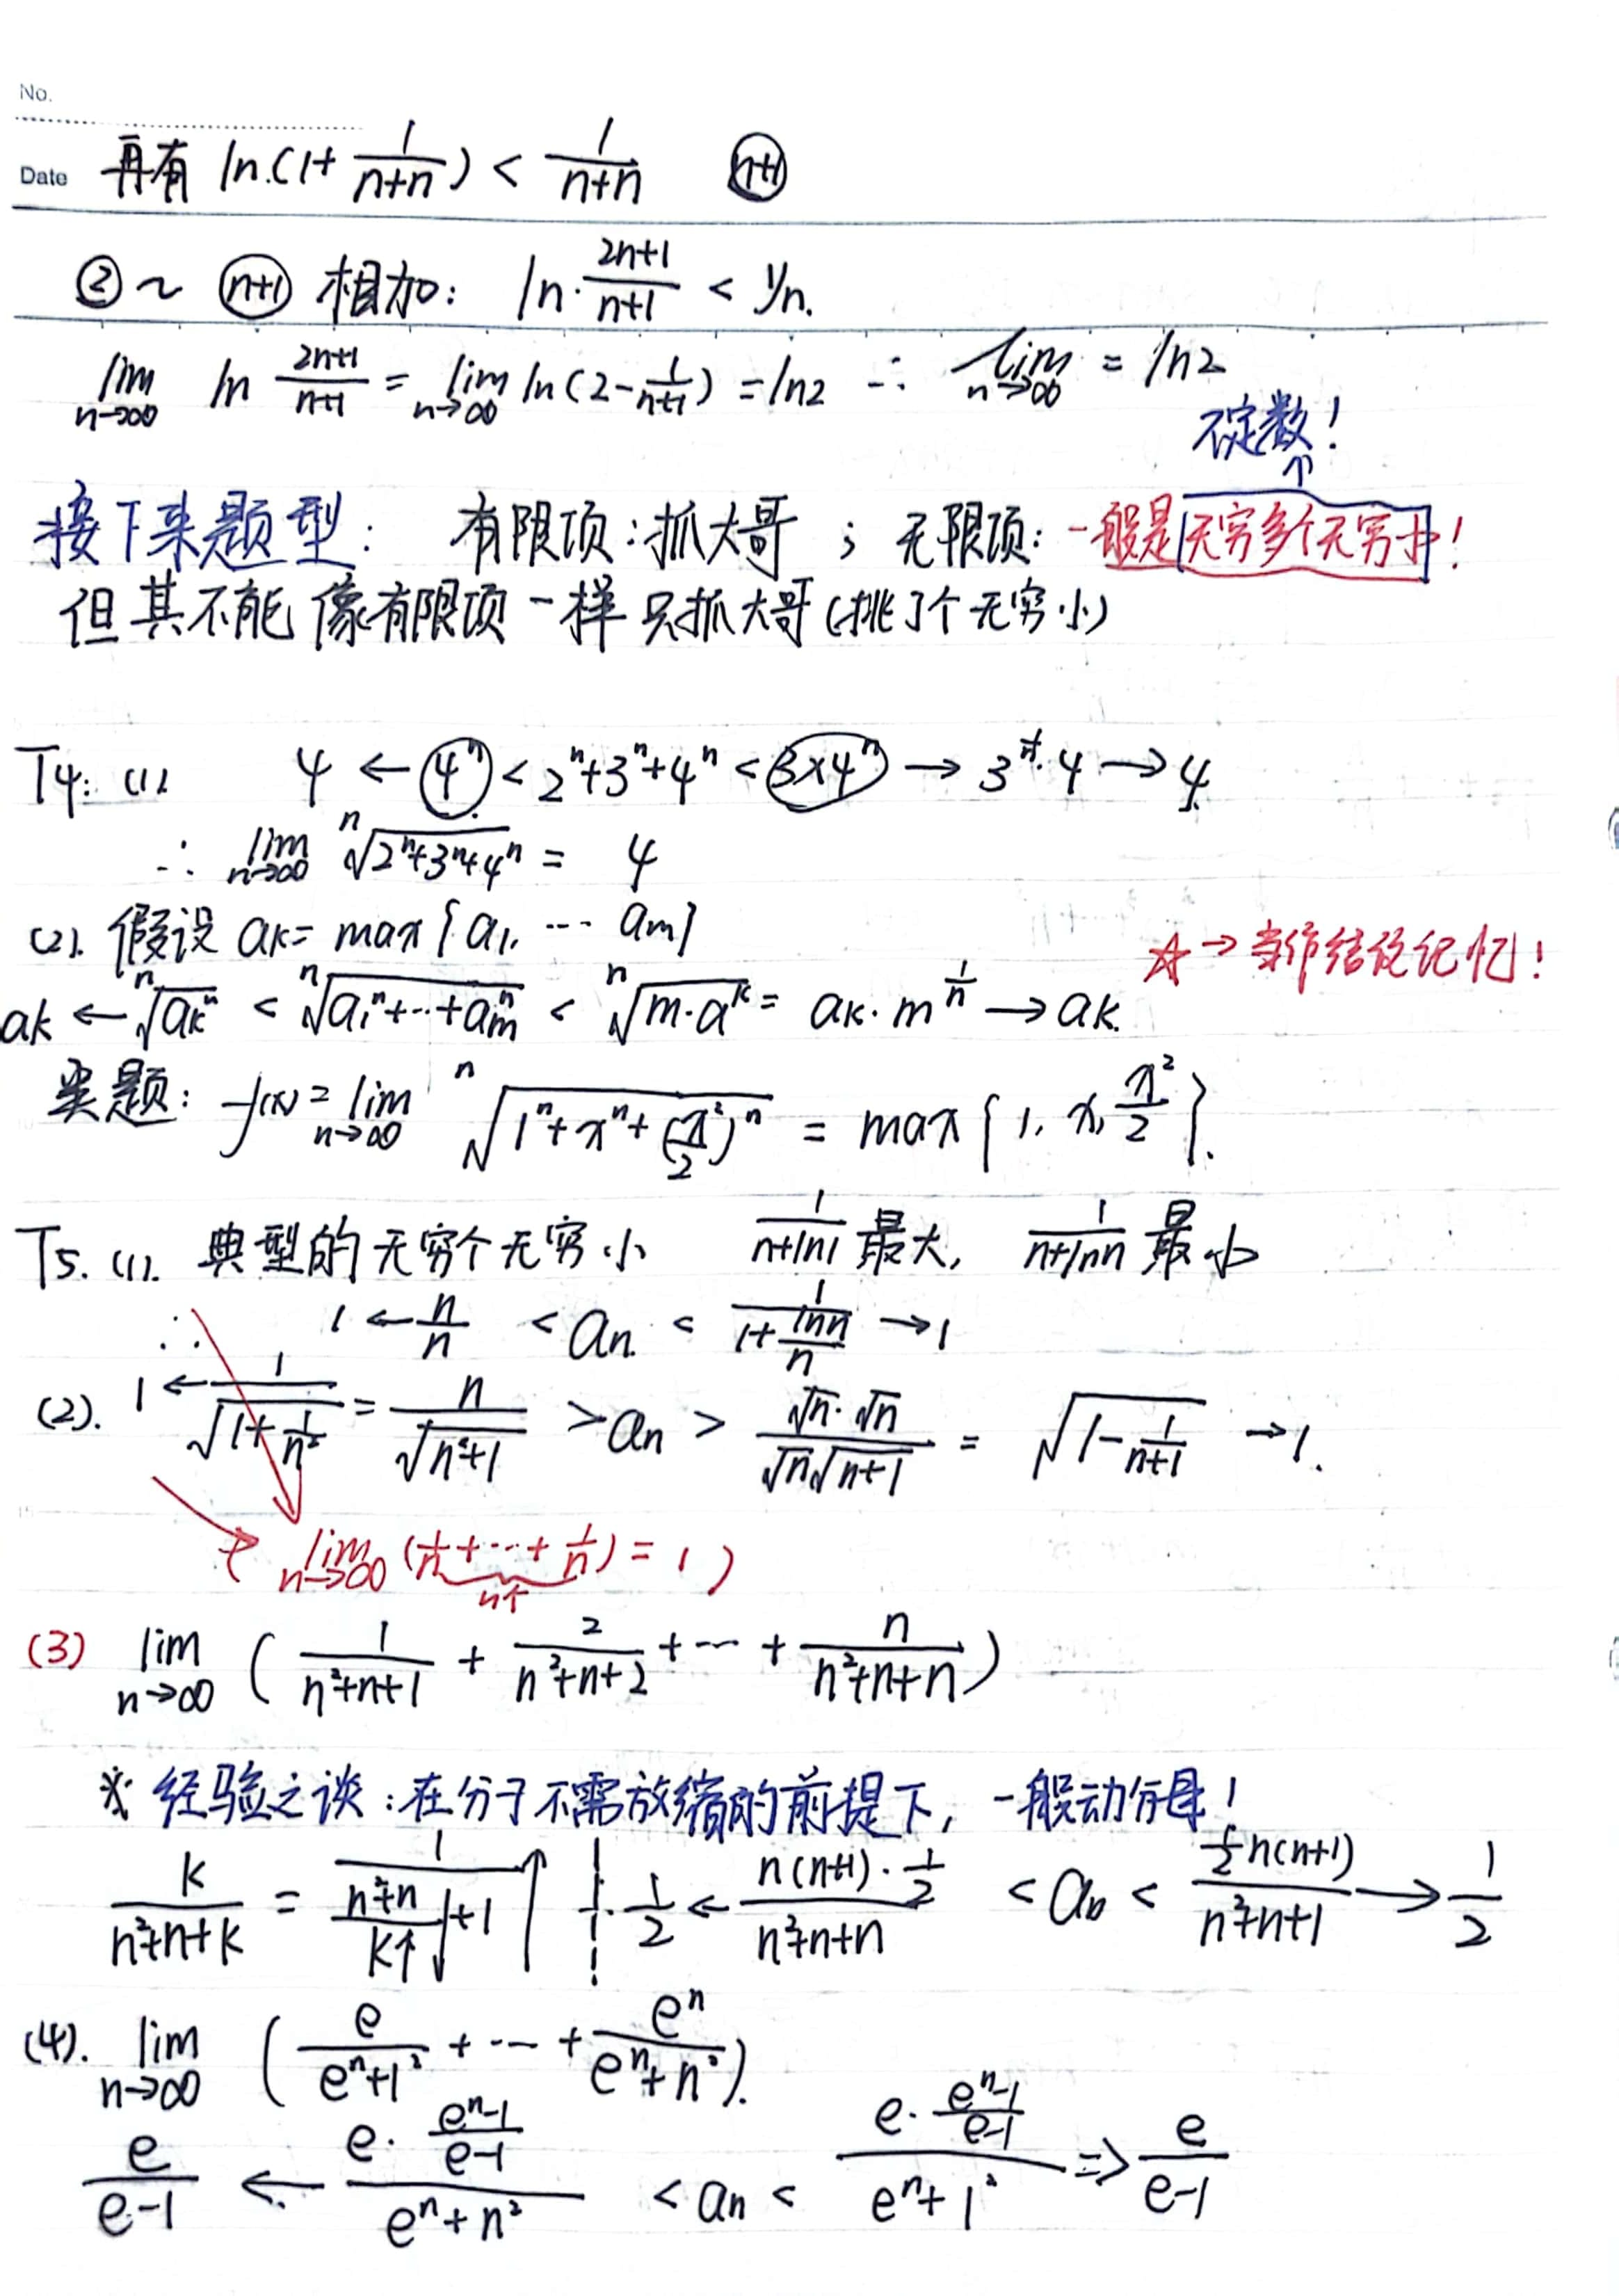 No.
Date 再有 ln(1+ 1/(n+n)) < 1/(n+n) (n+1)
② ~ (n+1) 相加: ln· (2n+1)/(n+1) < yn.
lim n→∞ ln (2n+1)/(n+1) = lim n→∞ ln(2-1/(n+1)) = ln2 ∴ lim n→∞ = ln2
不定数!
↑
接下来题型: 有限项:抓大哥 ; 无限项: 一般是无穷多个无穷小!
但其不能像有限项一样只抓大哥(挑了个无穷小)
T4: (1). 4 ← 4ⁿ < 2ⁿ+3ⁿ+4ⁿ < 3×4ⁿ → 3^(1/n)·4 → 4.
∴ lim n→∞ ⁿ√(2ⁿ+3ⁿ+4ⁿ) = 4
(2). 假设 aₖ= max{a₁, ··· aₘ}
☆→当作结论记忆!
ak ← ⁿ√(aₖⁿ) < ⁿ√(a₁ⁿ+··+aₘⁿ) < ⁿ√(m·a^k) = aₖ·m^(1/n) → aₖ.
类题: f(x) = lim n→∞ ⁿ√(1ⁿ+xⁿ+(x²/2)ⁿ) = max{1, x, x²/2}.
T5. (1). 典型的无穷个无穷小 1/(n+ln1) 最大, 1/(n+lnn) 最小
∴ 1 ← n/n < an < 1/(1+lnn/n) → 1
(2). 1 ← 1/√(1+1/n²) = n/√(n²+1) > an > (√n·√n)/(√n√(n+1)) = √(1-1/(n+1)) → 1.
( lim n→∞ (1/n+···+1/n) = 1 )
n个
(3) lim n→∞ ( 1/(n²+n+1) + 2/(n²+n+2) +···+ n/(n²+n+n) )
※ 经验之谈:在分子不需放缩的前提下, 一般动分母!
k/(n²+n+k) = 1/((n²+n)/k↑ ↓+1) ↑ 1/2 ← (n(n+1)·1/2)/(n²+n+n) < an < (1/2 n(n+1))/(n²+n+1) → 1/2
(4). lim n→∞ ( e/(eⁿ+1²) + ··· + eⁿ/(eⁿ+n²) ).
e/(e-1) ← (e·(eⁿ-1)/(e-1))/(eⁿ+n²) < an < (e·(eⁿ-1)/(e-1))/(eⁿ+1²) ⇒ e/(e-1)